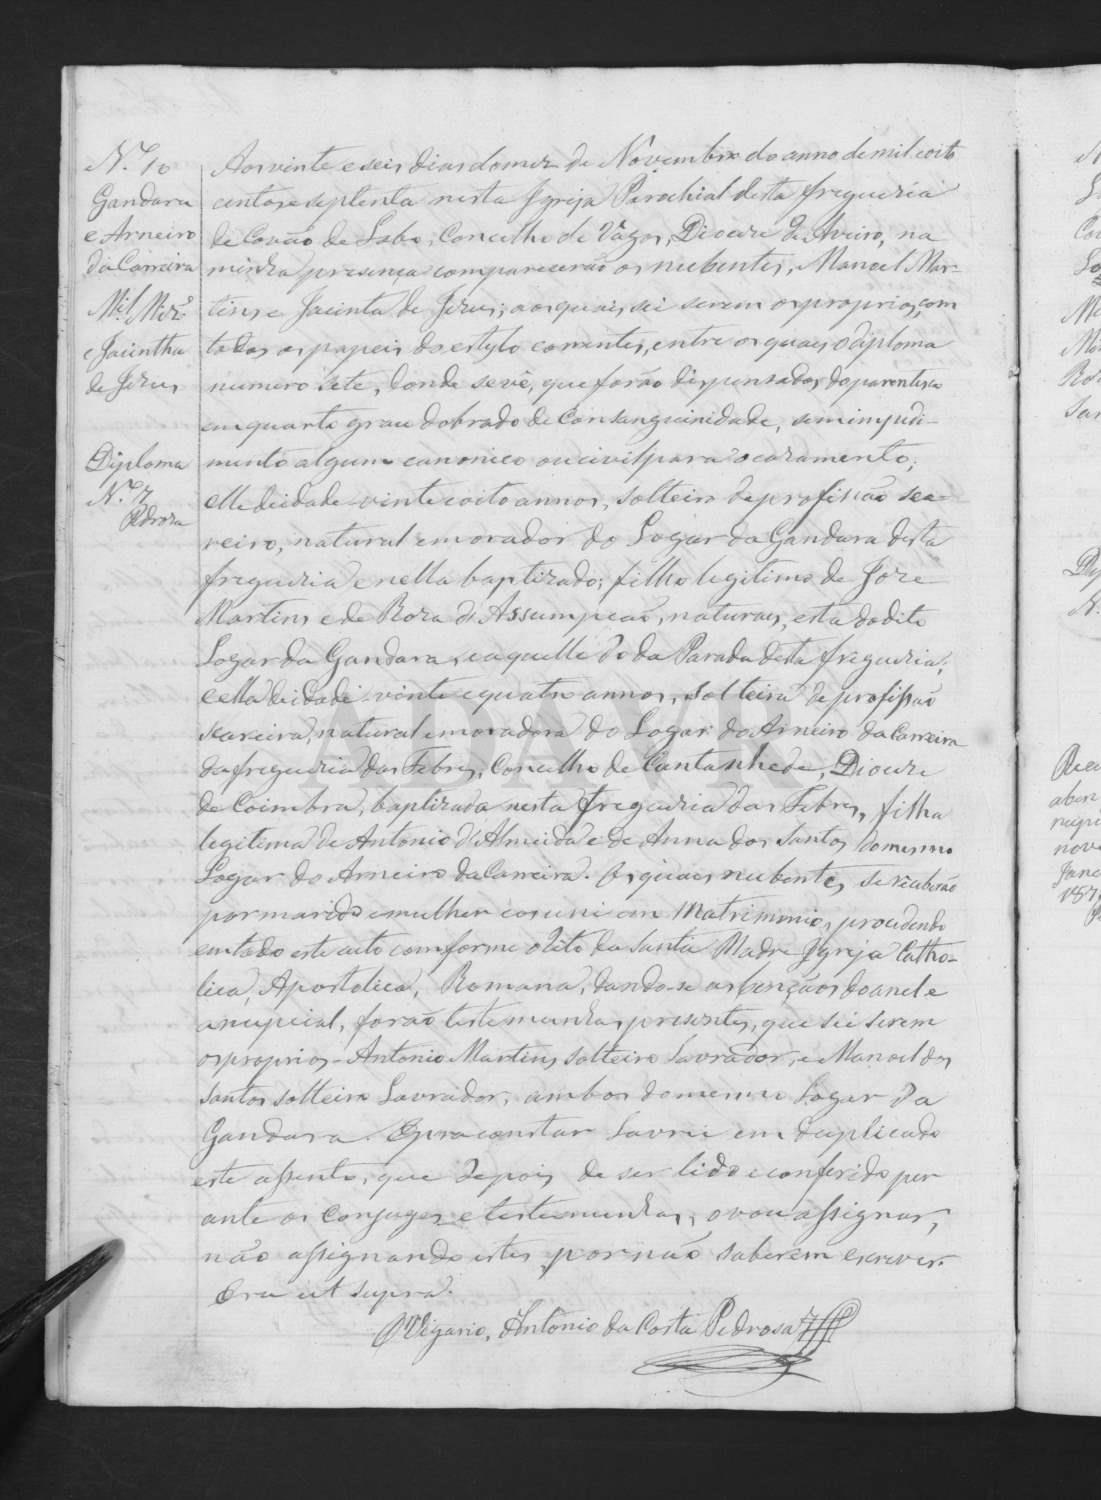 N.º 10
Gandara
e Arneiro
da Carreira
M.el Miz.
e Jacintha
de Jezus
Diploma
N.º 7
Pedrosa
Aos vinte e seis dias do mez de Novembro do anno de mil oito
centos e septenta nesta Igreja Parochial desta freguezia
de Covão do Lobo, Concelho de Vagos, Diocese de Aveiro, na
minha presença comparecerão os nubentes, Manoel Mar-
tins e Jacinta de Jezus; aos quais sei serem os proprios, com
todos os papeis do estylo correntes, entre os quaes o diploma
numero sete, donde se vê, que forão dispensados do parentesco
em quarto grau dobrado de Consanguinidade, sem impidi-
mento algum canonico ou civil para o cazamento;
elle de idade vinte e oito annos, solteiro de profissão sea-
reiro, natural e morador do Logar da Gandara desta
freguezia e nella baptizado; filho legitimo de Joze
Martins e de Roza d'Assumpção, naturaes, esta do dito
Logar da Gandara, e aquelle do da Parada desta freguezia;
e ella de idade vinte e quatro annos, solteira de profissão
seareira, natural e moradora do Logar do Arneiro da Carreira
da freguezia das Febres, Concelho de Cantanhede, Diocese
de Coimbra, baptizada nesta freguezia das Febres, filha
legitima de Antonio d'Almeida e de Anna dos Santos do mesmo
Logar do Arneiro da Carreira. Os quais nubentes se receberão
por marido e mulher e os uni em Matrimonio, procedendo
em todo este acto comforme o Rito da Santa Madre Igreja Catho-
lica, Apostolica, Romana, dando-se as bençãos do anel e
a nupcial, forão testemunhas presentes, que sei serem
os proprios - Antonio Martins solteiro Lavrador, e Manoel dos
Santos solteiro Lavrador, ambos do mesmo Logar da
Gandara. E para constar lavrei em duplicado
este assento, que depois de ser lido e conferido per
ante os Conjuges e testemunhas, o vou assignar,
não assignando estes por não saberem escrever.
Era ut supra.
O Vigario, Antonio da Costa Pedrosa
ADAVR